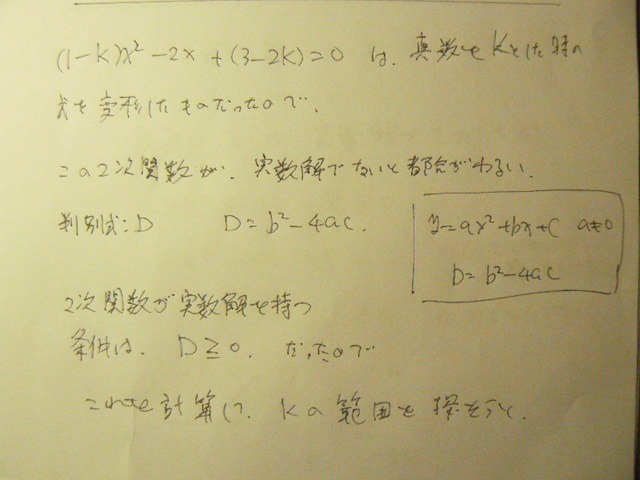 (1-k)x² -2x +(3-2k)=0 は、真数をkとした時の
式を変形したものだったので、
この2次関数が、実数解でないと都合がわるい。
判別式:D D=b²-4ac.
y=ax²+bx+c a≠0
D=b²-4ac
2次関数が実数解を持つ
条件は、D≧0. だったので
これを計算して、kの範囲を探そうと、